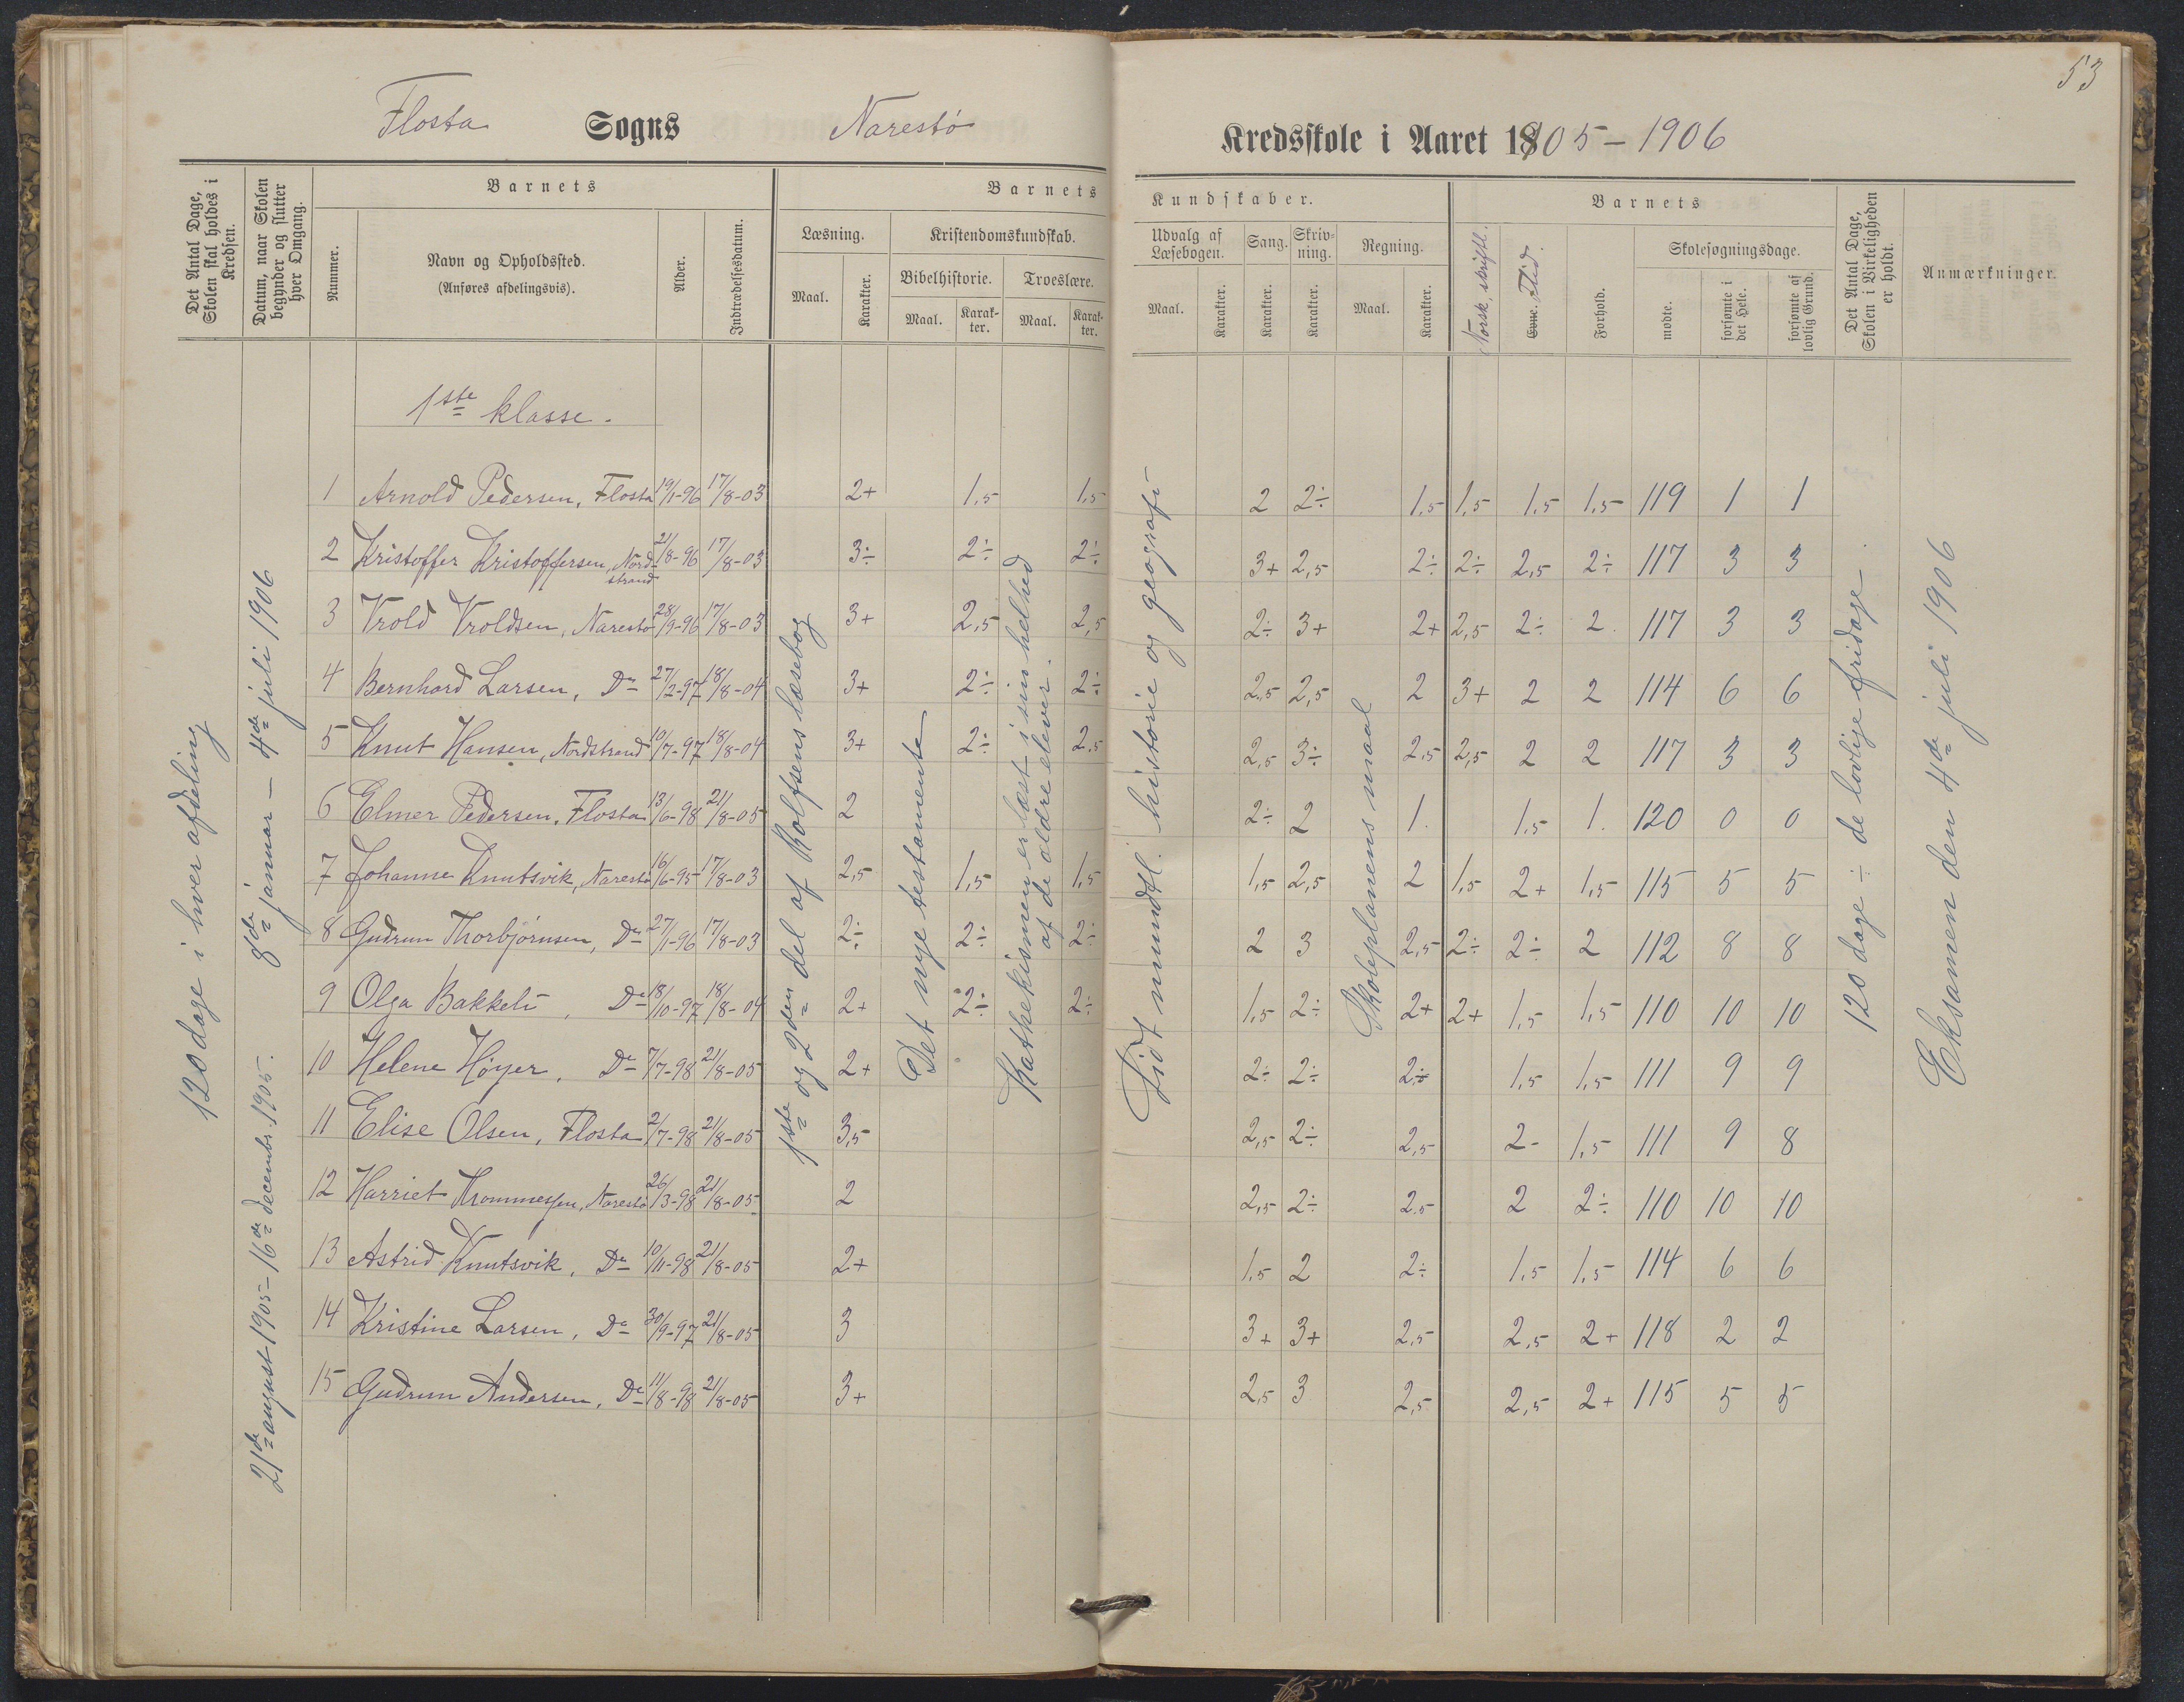 53
Flosta Sogns Narestö Kredsskole i Aaret 1905-1906
Det Antal Dage, Skolen skal holdes i Kredsen.
Datum, naar Skolen begynder og slutter hver Omgang.
Barnets
Nummer.
Navn og Opholdssted.
(Anføres afdelingsvis).
Alder.
Indtrædelsesdatum.
Barnets Kundskaber.
Læsning.
Maal.
Karakter.
Kristendomskundskab.
Bibelhistorie.
Maal.
Karak-
ter.
Troeslære.
Maal.
Karak-
ter.
Udvalg af
Læsebogen.
Maal.
Karakter.
Sang.
Karakter.
Skriv-
ning.
Karakter.
Regning.
Maal.
Karakter.
Barnets
Norsk, skriftl.
Evne. Flid.
Forhold.
Skolesøgningsdage.
mødte.
forsømte i det Hele.
forsømte af lovlig Grund.
Det Antal Dage, Skolen i Virkeligheden er holdt.
Anmærkninger.
120 dage i hver afdeling
21de august 1905 - 16de decembr. 1905.
8de januar - 4de juli 1906
1ste og 2den del af Rolfsens læsebog
Det nye testamente
Kathekismen er læst i sin helhed
af de ældre elever.
Lidt mundtl. historie og geografi
Skoleplanens maal
120 dage ÷ de lovlige fridage.
Eksamen den 4de juli 1906
1ste klasse.
1 Arnold Pedersen, Flosta 19/1-96 17/8-03 2+ 1,5 1,5 2 2÷ 1,5 1,5 1,5 1,5 119 1 1
2 Kristoffer Kristoffersen, Nord-
strand 21/8-96 17/8-03 3÷ 2÷ 2÷ 3+ 2,5 2÷ 2÷ 2,5 2÷ 117 3 3
3 Vrold Vroldsen, Narestö 28/9-96 17/8-03 3+ 2,5 2,5 2÷ 3+ 2+ 2,5 2÷ 2. 117 3 3
4 Bernhard Larsen, Do 27/2-97 18/8-04 3+ 2÷ 2÷ 2,5 2,5 2 3+ 2 2 114 6 6
5 Knut Hansen, Nordstrand 10/7-97 18/8-04 3+ 2÷ 2,5 2,5 3÷ 2,5 2,5 2 2 117 3 3
6 Elmer Pedersen, Flosta 13/6-98 21/8-05 2 2÷ 2 1. 1,5 1. 120 0 0
7 Johanne Knutsvik, Narestö 16/6-95 17/8-03 2,5 1,5 1,5 1,5 2,5 2 1,5 2+ 1,5 115 5 5
8 Gudrun Thorbjörnsen, Do 27/1-96 17/8-03 2÷ 2÷ 2÷ 2 3 2,5 2÷ 2÷ 2 112 8 8
9 Olga Bakkeli, Do 18/10-97 18/8-04 2+ 2÷ 2÷ 1,5 2÷ 2+ 2+ 1,5 1,5 110 10 10
10 Helene Höyer, Do 7/7-98 21/8-05 2+ 2÷ 2÷ 2÷ 1,5 1,5 111 9 9
11 Elise Olsen, Flosta 2/7-98 21/8-05 3,5 2,5 2÷ 2,5 2- 1,5 111 9 8
12 Harriet Thommessen, Narestö 26/3-98 21/8-05 2 2,5 2÷ 2,5 2 2÷ 110 10 10
13 Astrid Knutsvik, Do 10/11-98 21/8-05 2+ 1,5 2 2÷ 1,5 1,5 114 6 6
14 Kristine Larsen, Do 30/9-97 21/8-05 3 3+ 3+ 2,5 2,5 2+ 118 2 2
15 Gudrun Andersen, Do 11/8-98 21/8-05 3+ 2,5 3 2,5 2,5 2+ 115 5 5